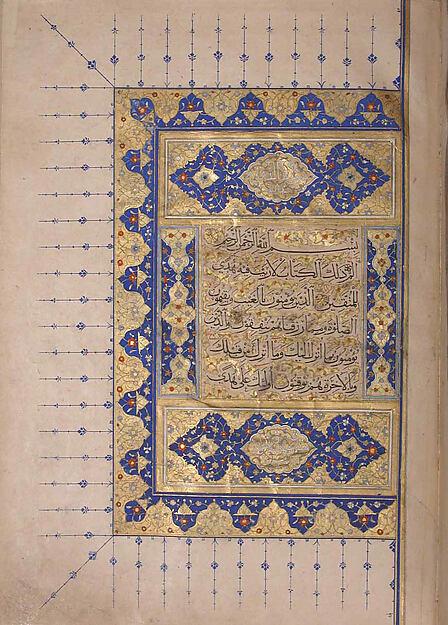 بسم الله الرحمن الرحيم
الم ذلك الكتاب لا ريب فيه هدى
للمتقين الذين يؤمنون بالغيب ويقيمون
الصلوة ومما رزقناهم ينفقون والذين
يؤمنون بما أنزل إليك وما أنزل من قبلك
وبالآخرة هم يوقنون أولئك على هدى